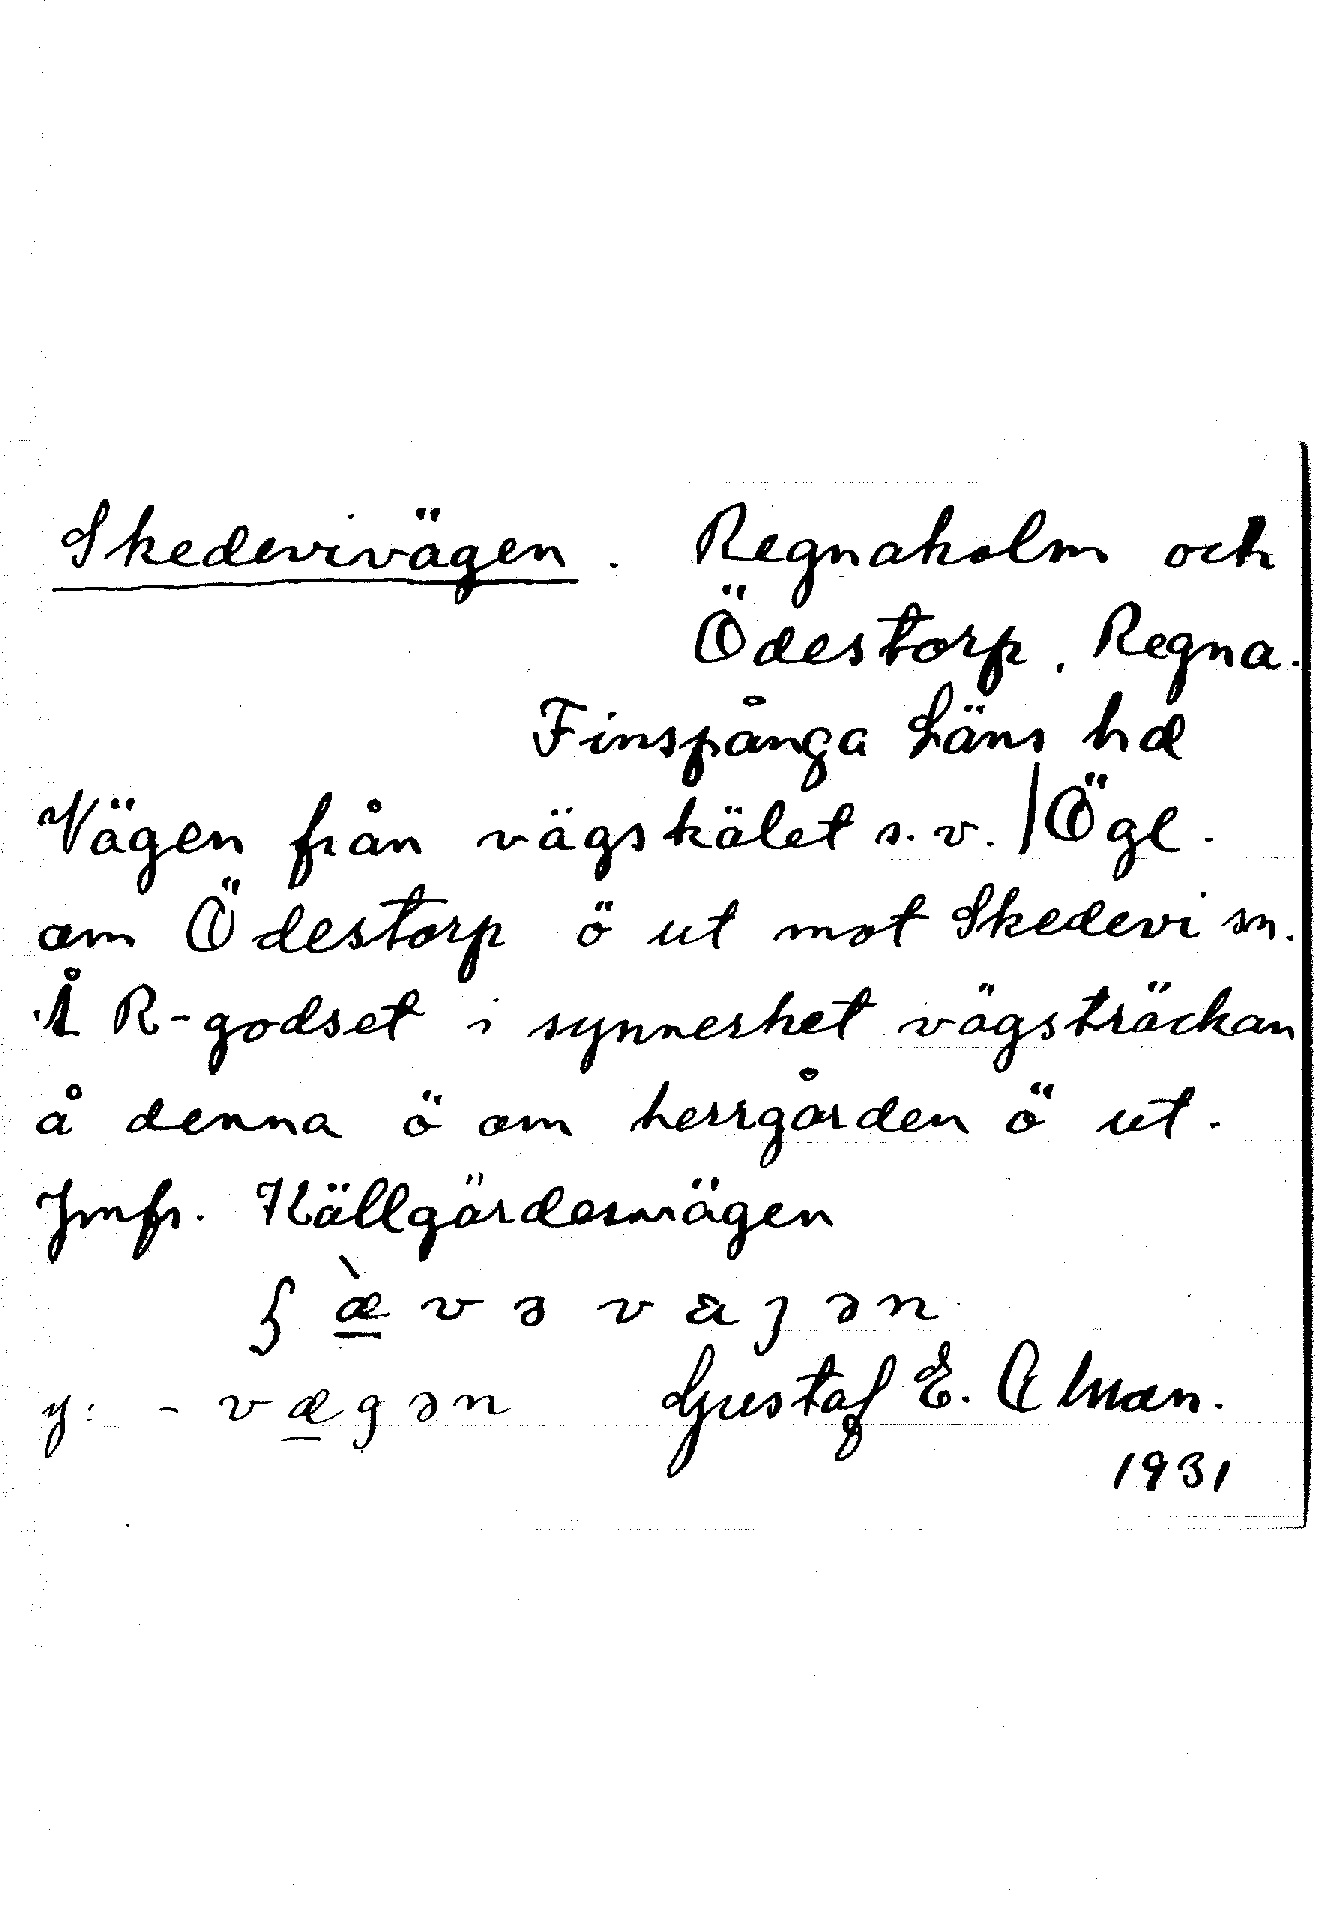 Skedevivägen. Regnaholm och
Ödestorp, Regna.
Finspånga Läns hd
Vägen från vägskälet s.v. / Ögl.
om Ödestorp ö ut mot Skedevi sn.
Å R-godset i synnerhet vägsträckan
å denna ö om herrgården ö ut.
Jmfr. Källgärdesvägen
ʃæ̀vɘvaȷən
y: -vægən Gustaf E. Alman.
1931